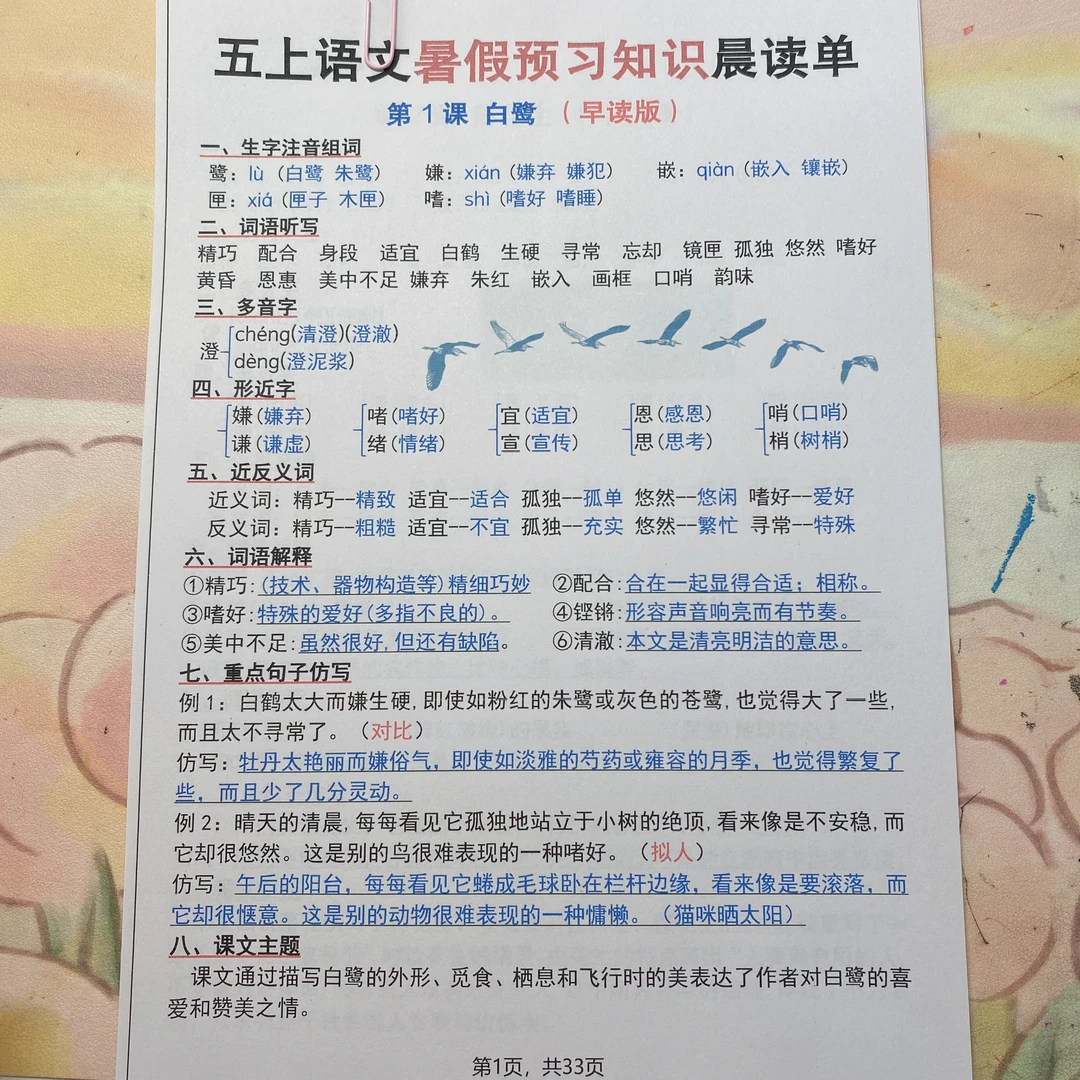 五上语文暑假预习知识晨读单
第1课 白鹭 （早读版）
一、生字注音组词
鹭：lù（白鹭 朱鹭） 嫌：xián（嫌弃 嫌犯） 嵌：qiàn（嵌入 镶嵌）
匣：xiá（匣子 木匣） 嗜：shì（嗜好 嗜睡）
二、词语听写
精巧 配合 身段 适宜 白鹤 生硬 寻常 忘却 镜匣 孤独 悠然 嗜好
黄昏 恩惠 美中不足 嫌弃 朱红 嵌入 画框 口哨 韵味
三、多音字
澄 chéng(清澄)(澄澈)
dèng(澄泥浆)
四、形近字
嫌（嫌弃） 嗜（嗜好） 宜（适宜） 恩（感恩） 哨（口哨）
谦（谦虚） 绪（情绪） 宣（宣传） 思（思考） 梢（树梢）
五、近反义词
近义词：精巧--精致 适宜--适合 孤独--孤单 悠然--悠闲 嗜好--爱好
反义词：精巧--粗糙 适宜--不宜 孤独--充实 悠然--繁忙 寻常--特殊
六、词语解释
①精巧：(技术、器物构造等)精细巧妙 ②配合：合在一起显得合适；相称。
③嗜好：特殊的爱好(多指不良的)。 ④铿锵：形容声音响亮而有节奏。
⑤美中不足：虽然很好,但还有缺陷。 ⑥清澈：本文是清亮明洁的意思。
七、重点句子仿写
例1：白鹤太大而嫌生硬,即使如粉红的朱鹭或灰色的苍鹭,也觉得大了一些,
而且太不寻常了。（对比）
仿写：牡丹太艳丽而嫌俗气，即使如淡雅的芍药或雍容的月季，也觉得繁复了
些，而且少了几分灵动。
例2：晴天的清晨,每每看见它孤独地站立于小树的绝顶,看来像是不安稳,而
它却很悠然。这是别的鸟很难表现的一种嗜好。（拟人）
仿写：午后的阳台，每每看见它蜷成毛球卧在栏杆边缘，看来像是要滚落，而
它却很惬意。这是别的动物很难表现的一种慵懒。（猫咪晒太阳）
八、课文主题
课文通过描写白鹭的外形、觅食、栖息和飞行时的美表达了作者对白鹭的喜
爱和赞美之情。
第1页，共33页